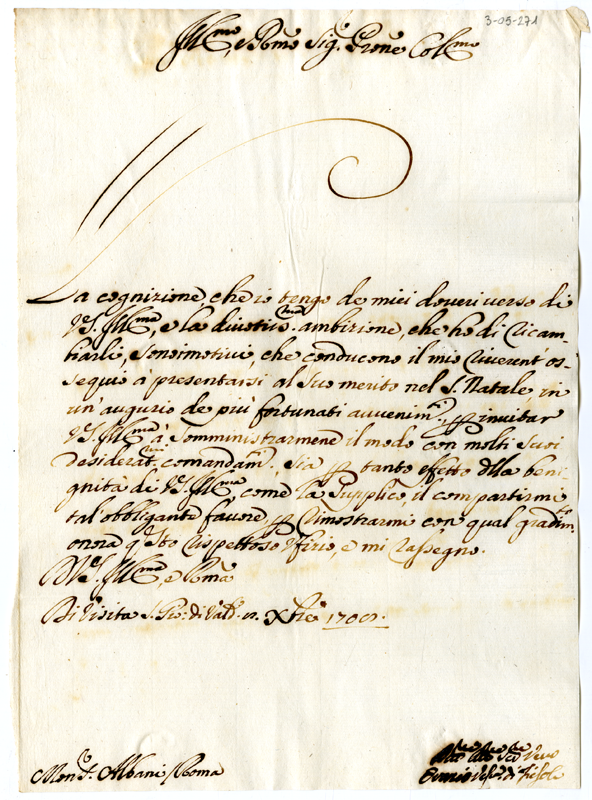 3-05-271
Ill.mo, e Rɱo Sig.r Prone Col.mo
La cognizione, che io tengo de miei doveri verso di
V.S. Ill.ma, e la divotis.ma ambizione, che ho di ricam-
biarli, sono i motivi, che conducono il mio riverent os-
sequio à presentarsi al suo merito nel S. Natale in
un'augurio de più fortunati avvenim.ti p invitar
V.S. Ill.ma à somministrarmene il modo con molti suoi
desiderat.mi comandam.ti. Sia p tanto effetto della beni-
gnità di V.S. Ill.ma, come la supplico, il compartirmi
tal'obbligante favore, p rimostrarmi con qual gradim.to
onora q.sto rispettoso ufizio, e mi rassegno.
Di V.S. Ill.ma, e Rɱa
Di Visita S. Gio: di Vald.o Xbre 1700.
Mon.r Albani Roma
Vero
Vesc.o di Fiesole